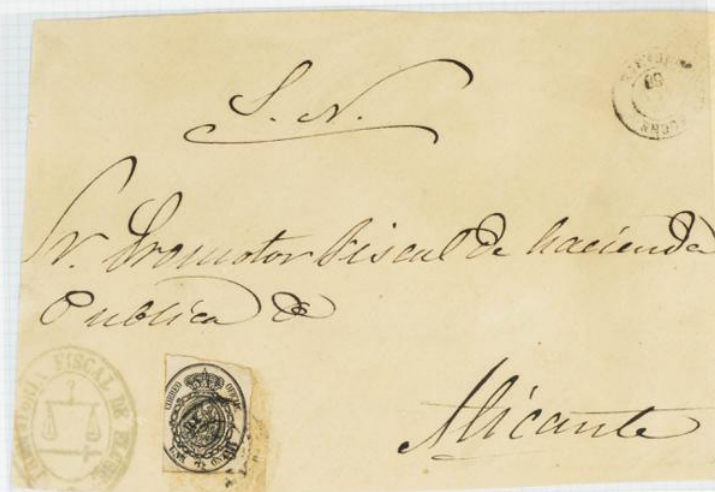 S. N.
Sr. Promotor Fiscal de hacienda
Publica de
Alicante
CORREO OFICIAL
FISCAL DE